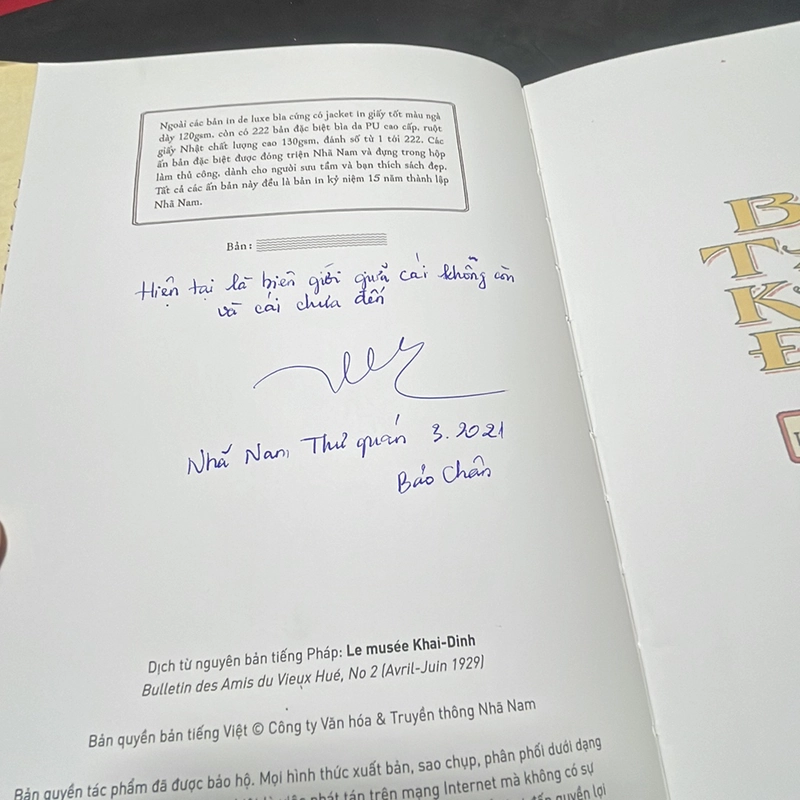 Ngoài các bản in de luxe bìa cứng có jacket in giấy tốt màu ngà
dày 120gsm, còn có 222 bản đặc biệt bìa da PU cao cấp, ruột
giấy Nhật chất lượng cao 130gsm, đánh số từ 1 tới 222. Các
ấn bản đặc biệt được đóng triện Nhã Nam và đựng trong hộp
làm thủ công, dành cho người sưu tầm và bạn thích sách đẹp.
Tất cả các ấn bản này đều là bản in kỷ niệm 15 năm thành lập
Nhã Nam.
Bản:
Hiện tại là biên giới giữa cái không còn
và cái chưa đến
Nhã Nam Thư quán 3.2021
Bảo Chân
Dịch từ nguyên bản tiếng Pháp: Le musée Khai-Dinh
Bulletin des Amis du Vieux Hué, No 2 (Avril-Juin 1929)
Bản quyền bản tiếng Việt © Công ty Văn hóa & Truyền thông Nhã Nam
Bản quyền tác phẩm đã được bảo hộ. Mọi hình thức xuất bản, sao chụp, phân phối dưới dạng
phát tán trên mạng Internet mà không có sự
quyền lợi
B
T
K
E